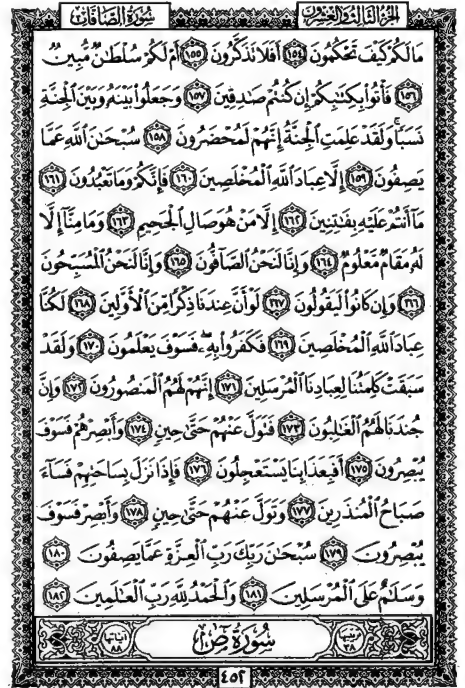 سورة الصافات الجزء الثالث والعشرون
مَا لَكُمْ كَيْفَ تَحْكُمُونَ ١٥٤ أَفَلَا تَذَكَّرُونَ ١٥٥ أَمْ لَكُمْ سُلْطَانٌ مُّبِينٌ
١٥٦ فَأْتُوا بِكِتَابِكُمْ إِن كُنتُمْ صَادِقِينَ ١٥٧ وَجَعَلُوا بَيْنَهُ وَبَيْنَ الْجِنَّةِ
نَسَبًا ۚ وَلَقَدْ عَلِمَتِ الْجِنَّةُ إِنَّهُمْ لَمُحْضَرُونَ ١٥٨ سُبْحَانَ اللَّهِ عَمَّا
يَصِفُونَ ١٥٩ إِلَّا عِبَادَ اللَّهِ الْمُخْلَصِينَ ١٦٠ فَإِنَّكُمْ وَمَا تَعْبُدُونَ ١٦١
مَا أَنتُمْ عَلَيْهِ بِفَاتِنِينَ ١٦٢ إِلَّا مَنْ هُوَ صَالِ الْجَحِيمِ ١٦٣ وَمَا مِنَّا إِلَّا
لَهُ مَقَامٌ مَّعْلُومٌ ١٦٤ وَإِنَّا لَنَحْنُ الصَّافُّونَ ١٦٥ وَإِنَّا لَنَحْنُ الْمُسَبِّحُونَ
١٦٦ وَإِن كَانُوا لَيَقُولُونَ ١٦٧ لَوْ أَنَّ عِندَنَا ذِكْرًا مِّنَ الْأَوَّلِينَ ١٦٨ لَكُنَّا
عِبَادَ اللَّهِ الْمُخْلَصِينَ ١٦٩ فَكَفَرُوا بِهِ ۖ فَسَوْفَ يَعْلَمُونَ ١٧٠ وَلَقَدْ
سَبَقَتْ كَلِمَتُنَا لِعِبَادِنَا الْمُرْسَلِينَ ١٧١ إِنَّهُمْ لَهُمُ الْمَنصُورُونَ ١٧٢ وَإِنَّ
جُندَنَا لَهُمُ الْغَالِبُونَ ١٧٣ فَتَوَلَّ عَنْهُمْ حَتَّى حِينٍ ١٧٤ وَأَبْصِرْهُمْ فَسَوْفَ
يُبْصِرُونَ ١٧٥ أَفَبِعَذَابِنَا يَسْتَعْجِلُونَ ١٧٦ فَإِذَا نَزَلَ بِسَاحَتِهِمْ فَسَاءَ
صَبَاحُ الْمُنذَرِينَ ١٧٧ وَتَوَلَّ عَنْهُمْ حَتَّى حِينٍ ١٧٨ وَأَبْصِرْ فَسَوْفَ
يُبْصِرُونَ ١٧٩ سُبْحَانَ رَبِّكَ رَبِّ الْعِزَّةِ عَمَّا يَصِفُونَ ١٨٠
وَسَلَامٌ عَلَى الْمُرْسَلِينَ ١٨١ وَالْحَمْدُ لِلَّهِ رَبِّ الْعَالَمِينَ ١٨٢
ترتيبها ٣٨ سُورَةُ صٓ آياتها ٨٨
٤٥٢